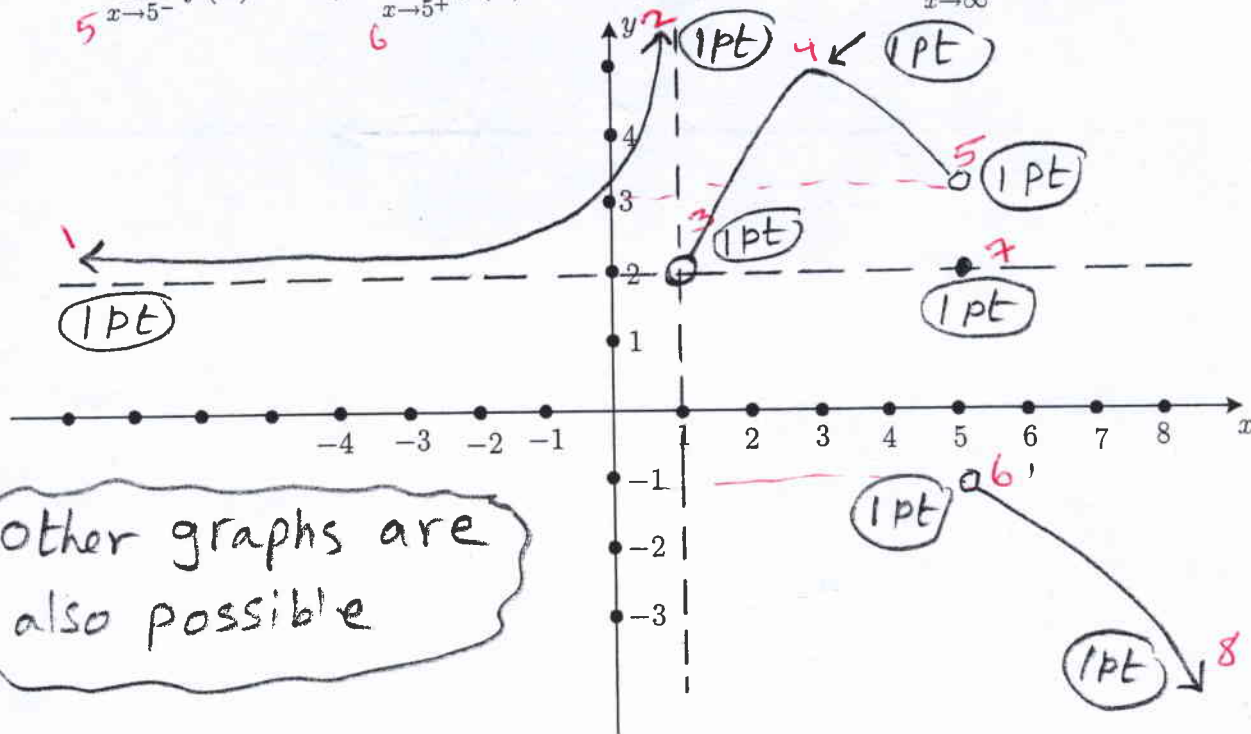 5 x→5⁻
6 x→5⁺
x→∞
y
2
1pt
4
1pt
4
5
1pt
3
3
1pt
1
2
7
1pt
1pt
1
−4 −3 −2 −1 1 2 3 4 5 6 7 8 x
−1
6
1pt
other graphs are
also possible
−2
−3
1pt
8